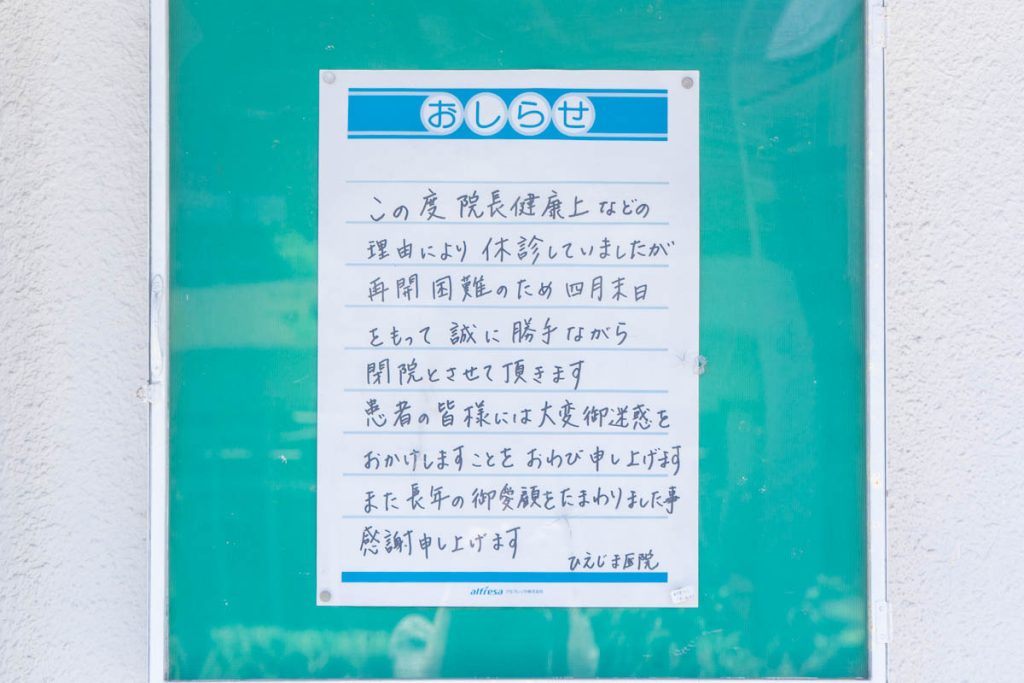 おしらせ
この度 院長健康上などの
理由により 休診していましたが
再開困難のため 四月末日
をもって 誠に勝手ながら
閉院とさせて頂きます
患者の皆様には大変御迷惑を
おかけしますことを おわび申し上げます
また長年の御愛顧をたまわりました事
感謝申し上げます
ひえじま医院
alfresa アルフレッサ株式会社